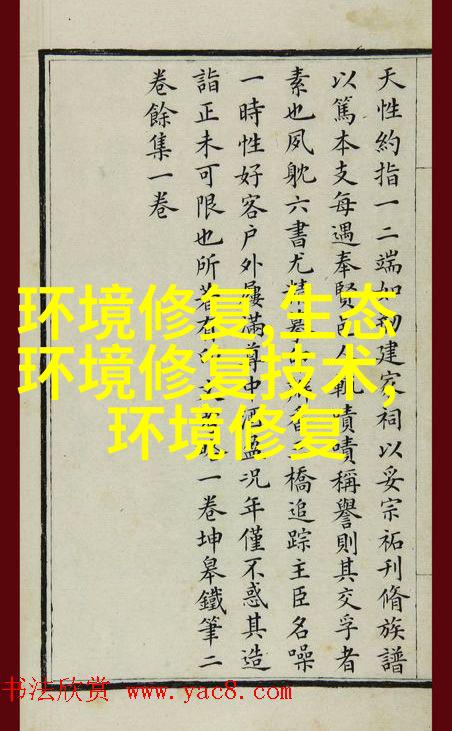 环境修复,生态
环境修复技术,
环境修复
天性約指一二端如建家祠以妥宗祏刊脩族譜
以篤本支每遇奉賢邑人輒嘖嘖稱譽則其交孚者
素也夙躭六書尤精橋追踪主臣名噪
一時性好客戶外屨滿尊中酒盈況年僅不惑其造
詣正未可限也所著一卷坤皋鐵筆二
卷餘集一卷
书法欣赏 www.yac8.com